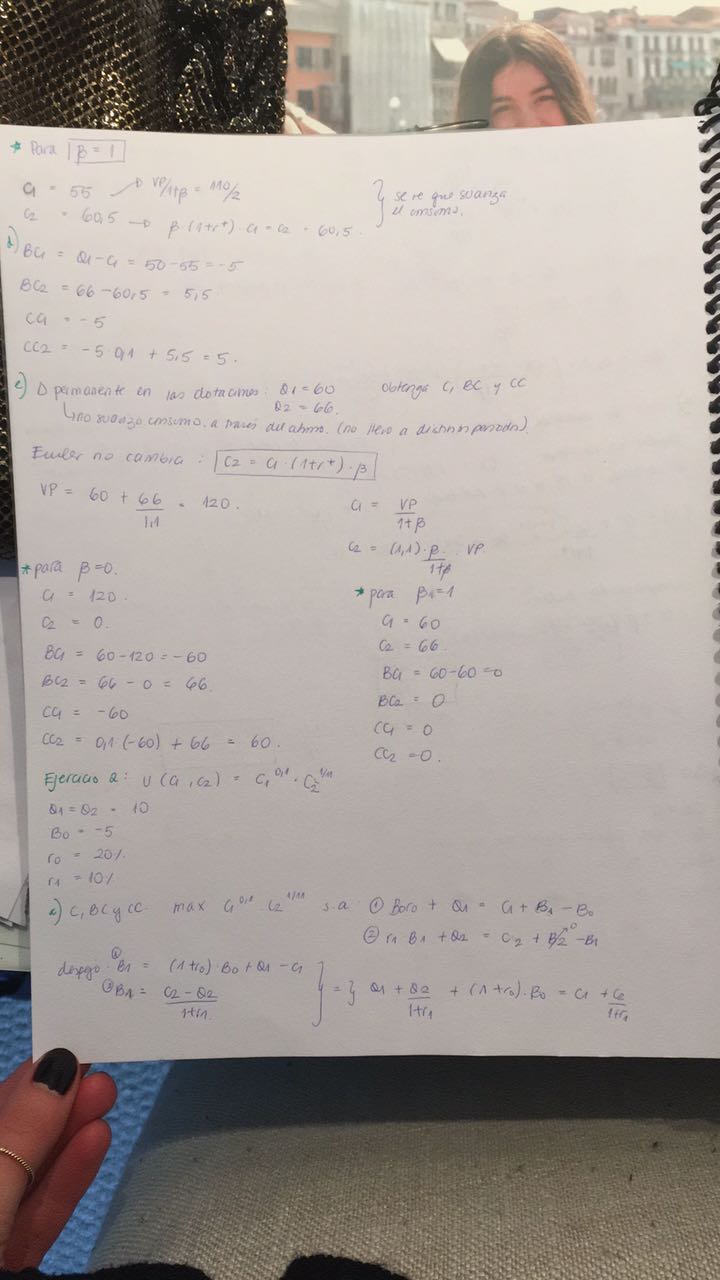 * Para β = 1
C1 = 55 → VP/1+β = 110/2
C2 = 60,5 → β·(1+r*)·C1 = C2 = 60,5.
} se ve que suaviza el consumo.
d) BC1 = Q1 - C1 = 50 - 55 = -5
BC2 = 66 - 60,5 = 5,5
CC1 = -5
CC2 = -5·0,1 + 5,5 = 5.
e) Δ permanente en las dotaciones: Q1 = 60 Obtenga C, BC y CC
Q2 = 66.
↳ no suavizo consumo. a través del ahorro. (no llevo a distintos periodos).
Euler no cambia: C2 = C1·(1+r*)·β
VP = 60 + 66/1,1 = 120.
C1 = VP/1+β
C2 = (1,1)·β/1+β · VP
* para β=0.
C1 = 120.
C2 = 0.
BC1 = 60-120 = -60
BC2 = 66 - 0 = 66
CC1 = -60
CC2 = 0,1·(-60) + 66 = 60.
* para β=1
C1 = 60
C2 = 66
BC1 = 60-60 = 0
BC2 = 0
CC1 = 0
CC2 = 0.
Ejercicio 2: U(C1, C2) = C1^0,1 · C2^1/11
Q1 = Q2 = 10
B0 = -5
r0 = 20%
r1 = 10%
a) C, BC y CC. max C1^0,1 · C2^1/11 s.a ① B0r0 + Q1 = C1 + B1 - B0
② r1 B1 + Q2 = C2 + B2 - B1
0
despejo ① B1 = (1+r0)·B0 + Q1 - C1
② B1 = C2 - Q2/1+r1
} = } Q1 + Q2/1+r1 + (1+r0)·B0 = C1 + C2/1+r1